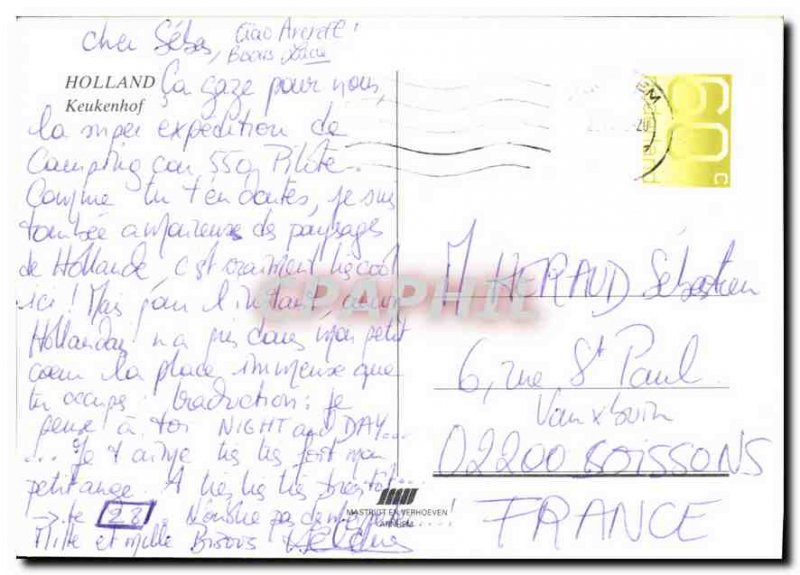 cher Sébas, Ciao
Bisous
HOLLAND
Keukenhof
Ça gaze pour nous,
la super expédition de
Camping
Comme tu t'en doutes, je suis
tombée amoureuse des paysages
de Hollande, c'est vraiment cool
ici ! Mais pour l'instant, aucun
Hollandais n'a pris dans mon petit
cœur la place immense que
tu occupes : traduction : je
pense à toi NIGHT and DAY...
... Je t'aime fort mon
petit ange. A très très très bientôt...
→ le 28. N'oublie pas de
Mille et mille Bisous
60 C
M HERAUD Sébastien
6, rue St Paul
02200 SOISSONS
FRANCE
MASTRIGT EN VERHOEVEN
ARNHEM
CPAPHIL